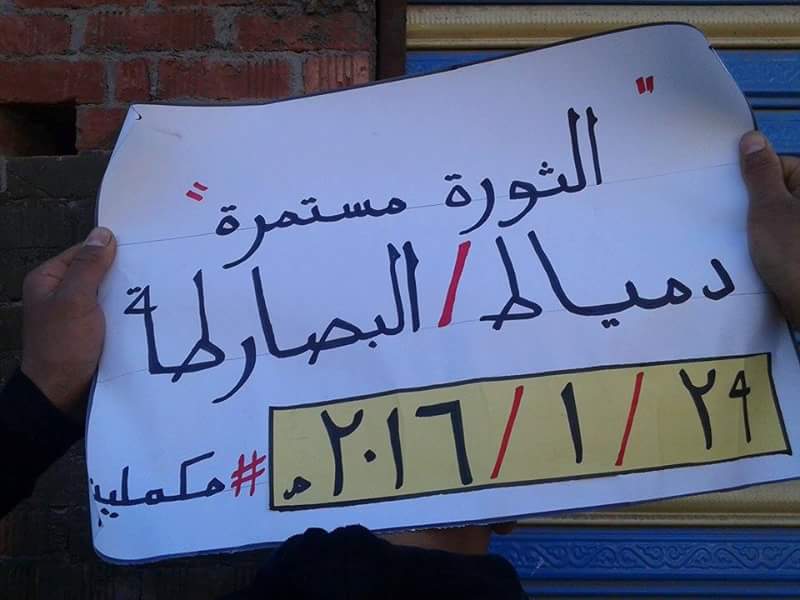 "الثورة مستمرة"
دمياط / البصارطة
٢٩ / ١ / ٢٠١٦م
#مكملين